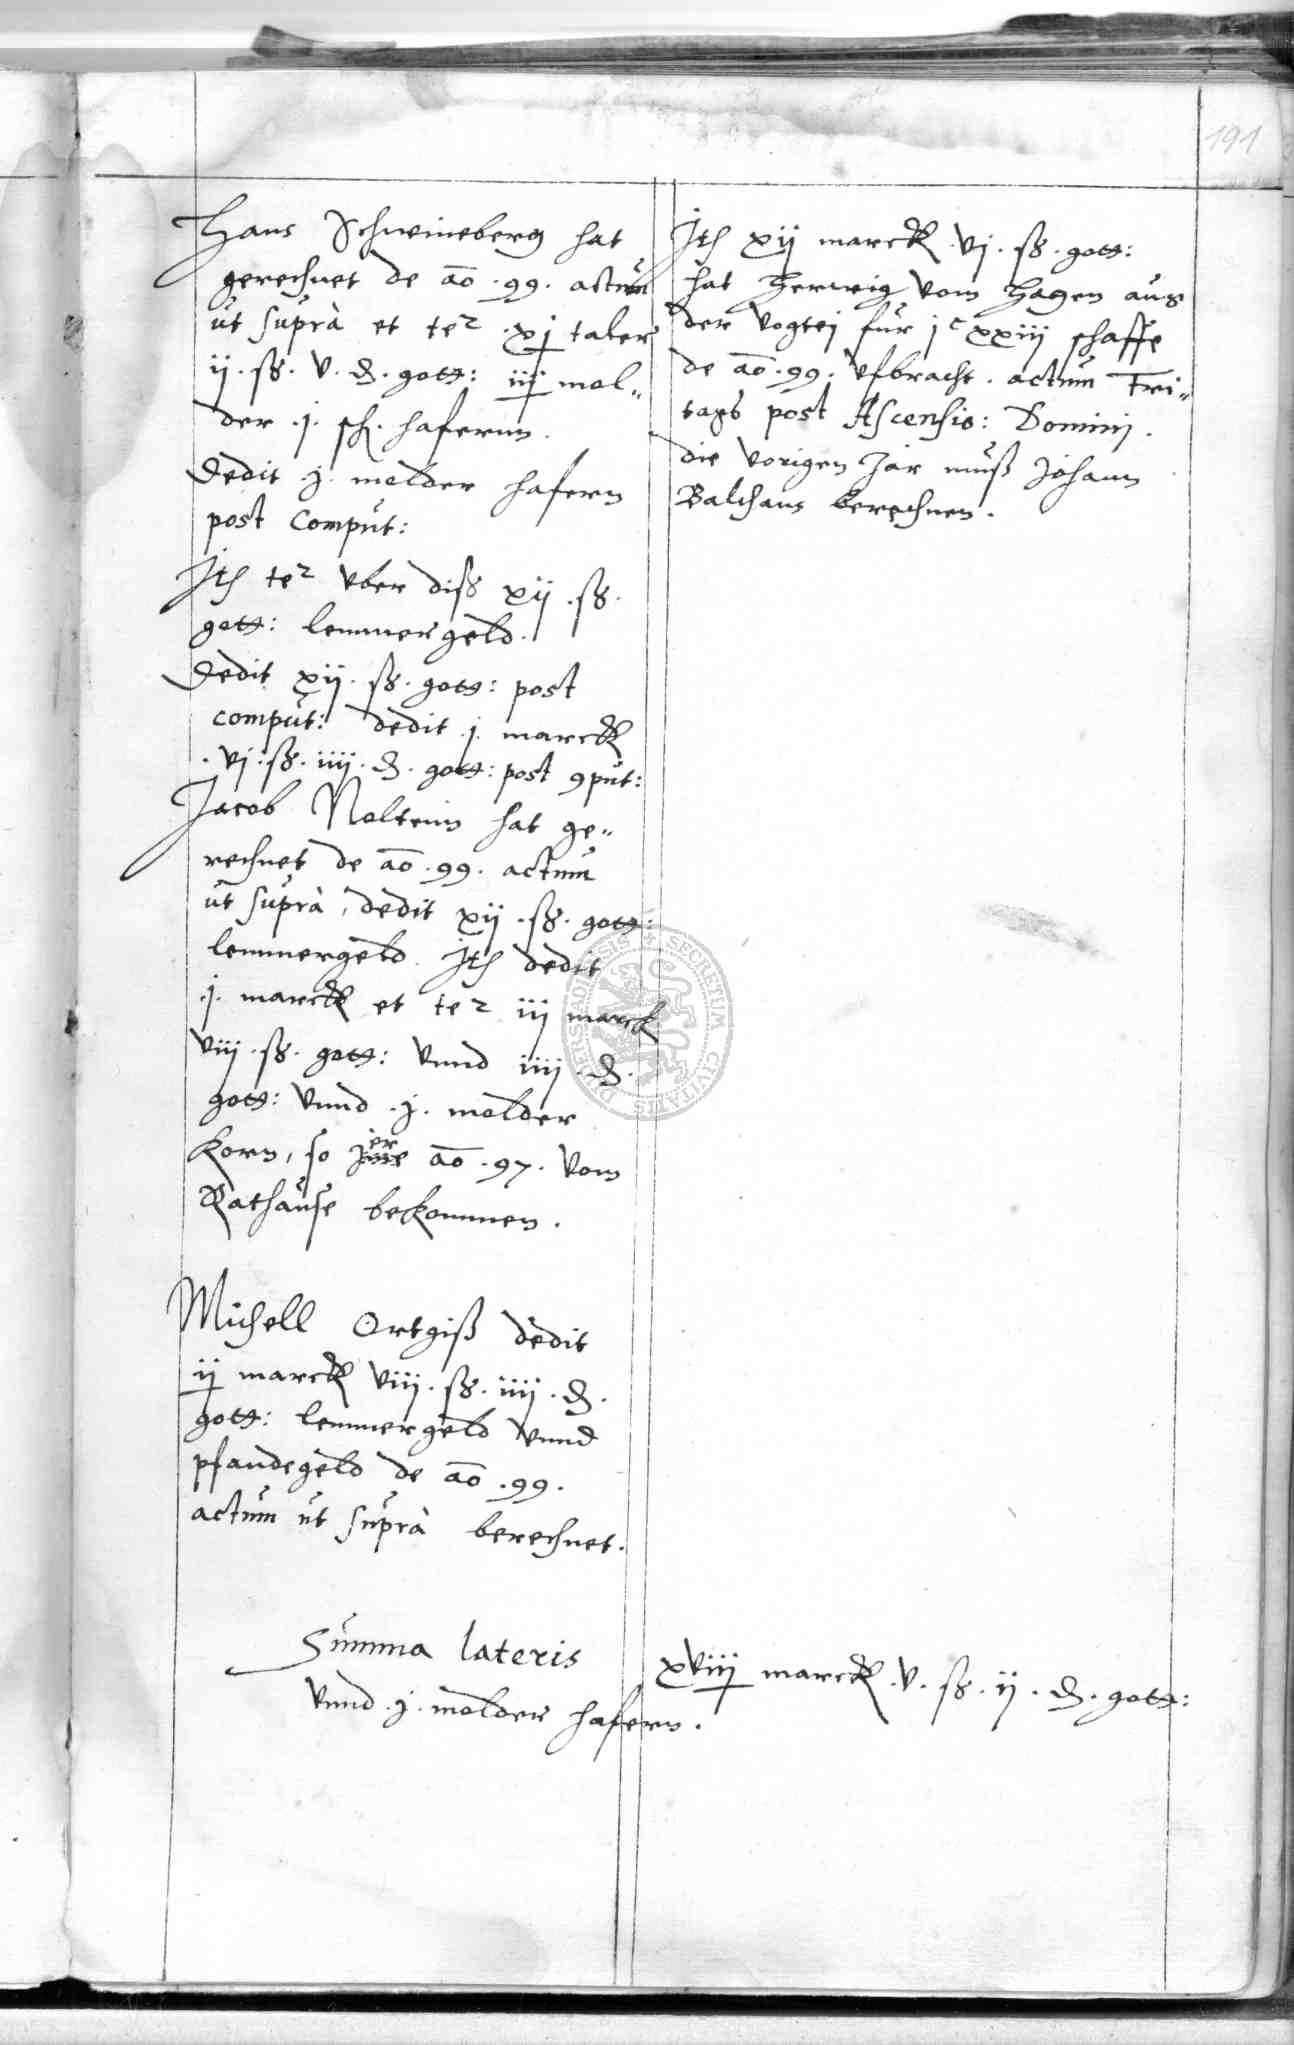 191
Hans Schweineberg hat
gerechnet de ao .99. actum
ut suprà et te² .xj taler
ij . ß . v . d . gott: iiij mol„
der .j. sch. hafernn.
Dedit .j. molder hafern
post comput:
Ith te² vber diss xij . ß .
gott: lemmergeld.
Dedit xij . ß . gott: post
comput: dedit .j. marck
. vj : ß . iiij . d . gott: post 9put:
Jacob Noltenn hat ge„
rechnet de ao .99. actum
ut suprà, dedit xij . ß . gott:
lemmergeld. Ith dedit
.j. marck et te² iij marck
viij . ß . gott: vnnd iiij . d .
gott: vnnd .j. molder
Korn, so er ao .97. vom
Rathause bekommen.
Michell Ortgiß dedit
ij marck viij . ß . iiij . d .
gott: lemmergeld vnnd
pfandegeld de ao .99.
actum ut suprà berechnet.
Ith xij marck . vj . ß . gott:
hat Herwig vom Hagen aus
der Vogtej für jc xxiij schaffe
de ao .99. vfbracht. actum Fri„
tags post Ascensio: Dominj.
die vorigen Jar muß Johann
Balthans berechnen.
Summa lateris xviij marck . v . ß . ij . d . gott:
vnnd .j. molder hafern.
SECRETUM CIVITATIS DUDERSTADIENSIS